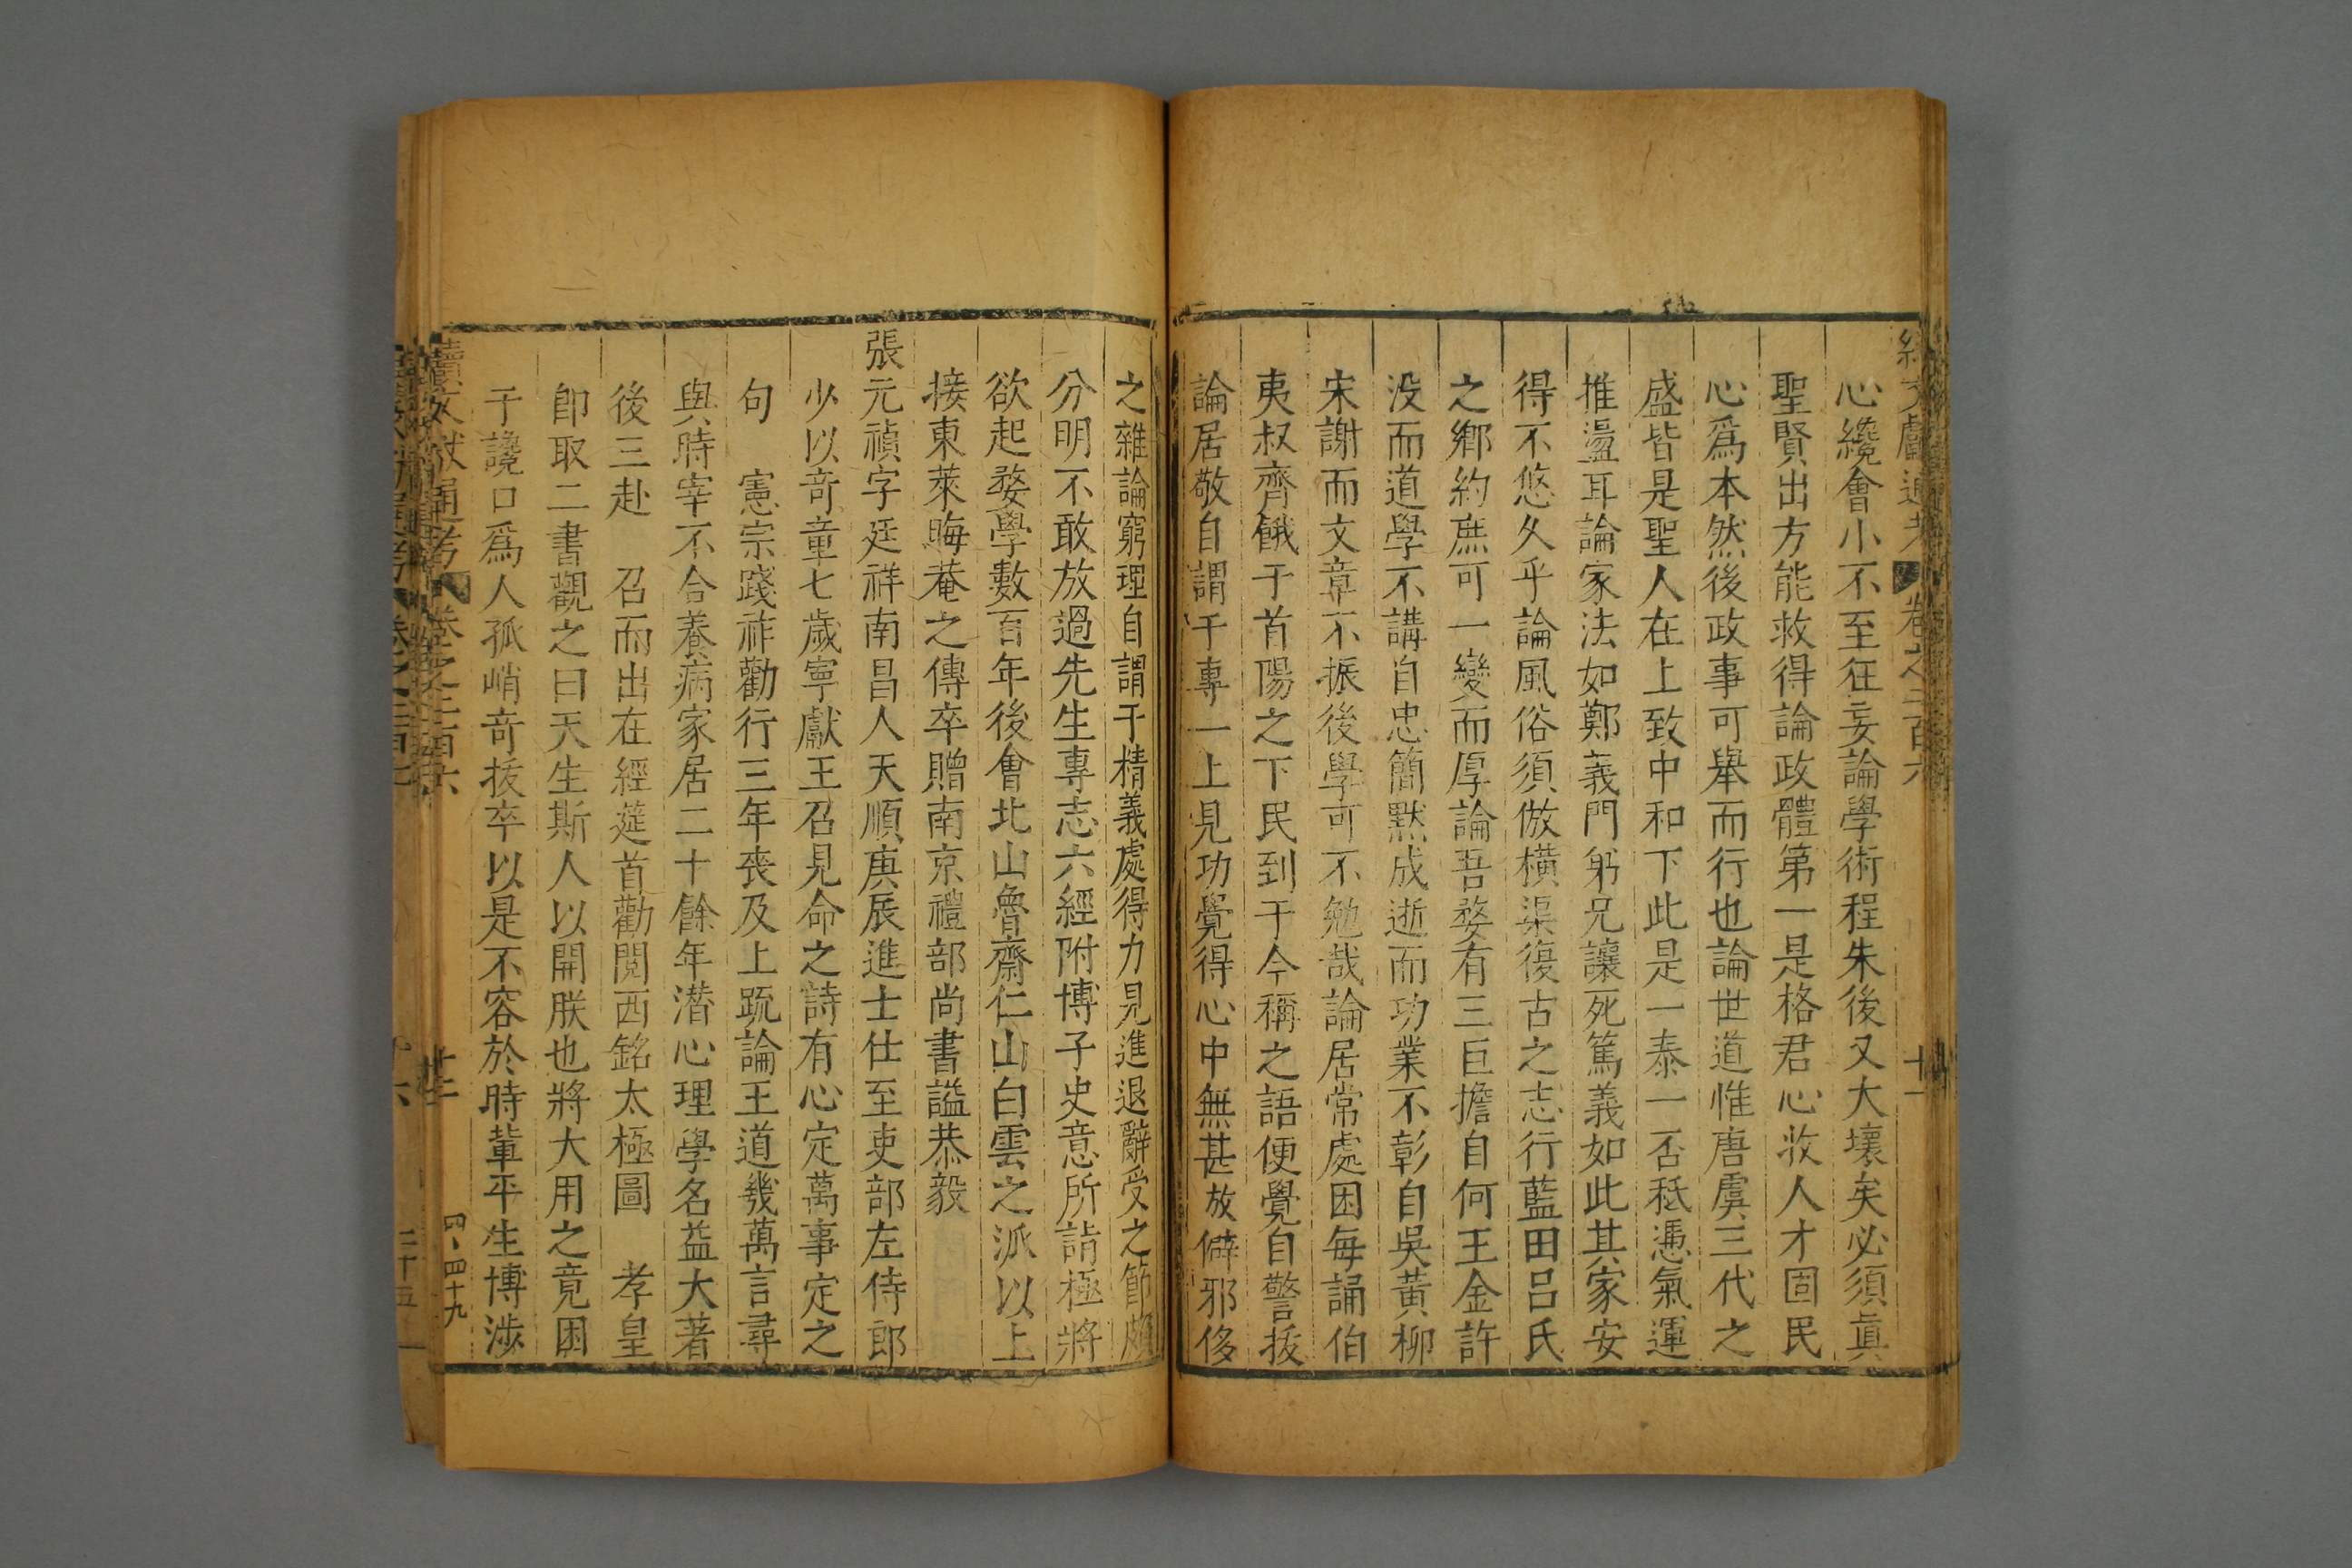 續文獻通考 卷之二百六 十一
心纔會小不至狂妄論學術程朱後又大壞矣必須眞
聖賢出方能救得論政體第一是格君心收人才固民
心爲本然後政事可舉而行也論世道惟唐虞三代之
盛皆是聖人在上致中和下此是一泰一否秪憑氣運
推盪耳論家法如鄭義門躬兄讓死篤義如此其家安
得不悠久乎論風俗須倣橫渠復古之志行藍田呂氏
之鄉約庶可一變而厚論吾婺有三巨擔自何王金許
没而道學不講自忠簡默成逝而功業不彰自吳黃柳
宋謝而文章不振後學可不勉哉論居常處困每誦伯
夷叔齊餓于首陽之下民到于今稱之語便覺自警拔
論居敬自謂于專一上見功覺得心中無甚放僻邪侈
之雜論窮理自謂于精義處得力見進退辭受之節頗
分明不敢放過先生專志六經附博子史意所詣極將
欲起婺學數百年後會北山魯齋仁山白雲之派以上
接東萊晦菴之傳卒贈南京禮部尚書謚恭毅
張元禎字廷祥南昌人天順庚辰進士仕至吏部左侍郎
少以奇童七歲寧獻王召見命之詩有心定萬事定之
句 憲宗踐祚勸行三年喪及上䟽論王道幾萬言尋
與時宰不合養病家居二十餘年潛心理學名益大著
後三赴 召而出在經筵首勸閱西銘太極圖 孝皇
卽取二書觀之曰天生斯人以開朕也將大用之竟困
于讒口爲人孤峭奇拔卒以是不容於時輩平生博涉
續文獻通考 卷之二百六
四、四十九